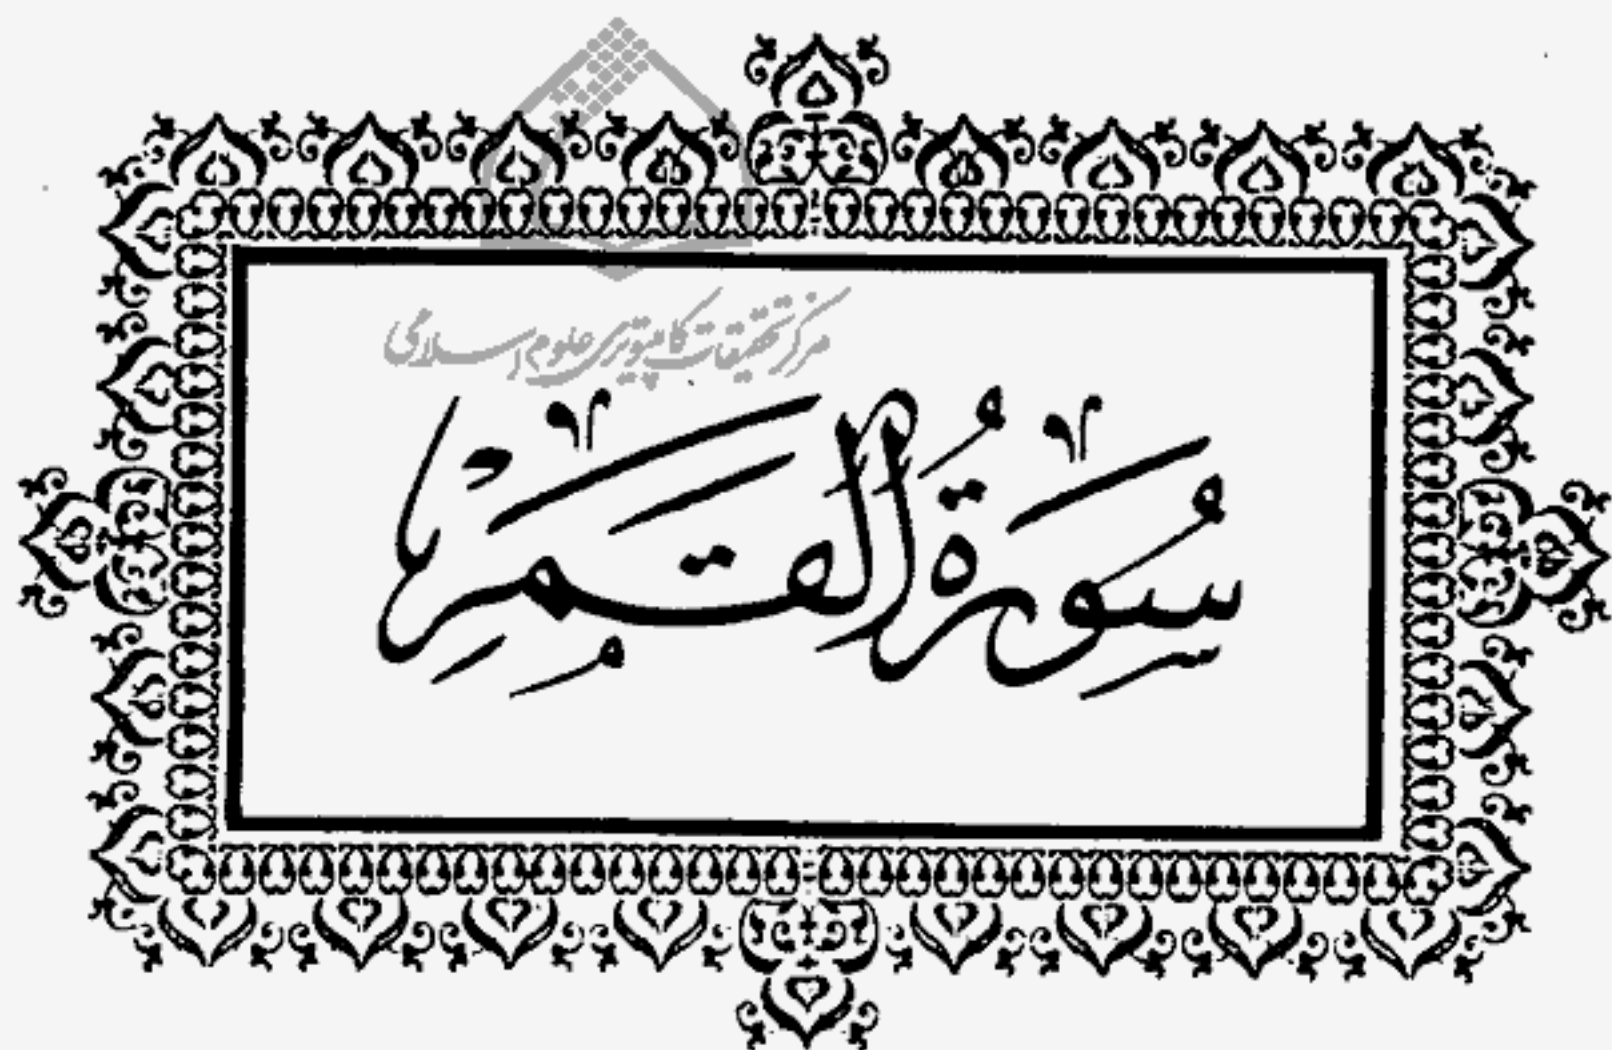 مرکز تحقیقات کامپیوتری علوم اسلامی
سُورَةُ الْقَمَرِ